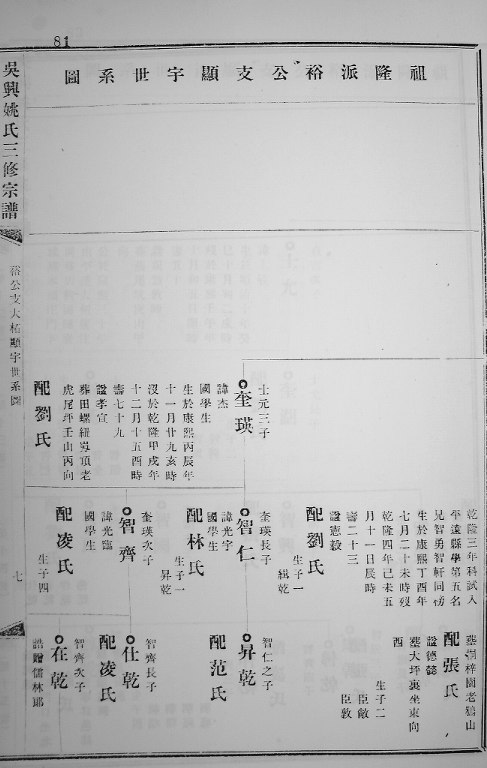 81
祖隆派裕公支顯宇世系圖
吳興姚氏三修宗譜
裕公支大柘顯宇世系圖
七
士元三子
奎瑛
諱杰
國學生
生於康熙丙辰年
十一月廿九亥時
沒於乾隆甲戌年
十二月十五酉時
壽七十九
諡孝宣
葬田螺紐吳項老
虎尾坪壬山丙向
配劉氏
乾隆三年科試入
平遠縣學第五名
兄智勇智軒同榜
生於康熙丁酉年
七月二十未時歿
乾隆四年己未五
月十一日辰時
壽二十三
諡憲毅
配劉氏
生子一
緝乾
奎瑛長子
智仁
諱光宇
國學生
配林氏
生子一
昇乾
奎瑛次子
智齊
諱光臨
國學生
配凌氏
生子四
葬澗梓園老鴉山
配張氏
諡德懿
葬大坪裏坐東向
西
生子二
臣敵
臣敦
智仁之子
昇乾
配范氏
智齊長子
仕乾
配凌氏
智齊次子
在乾
誥贈儒林郎